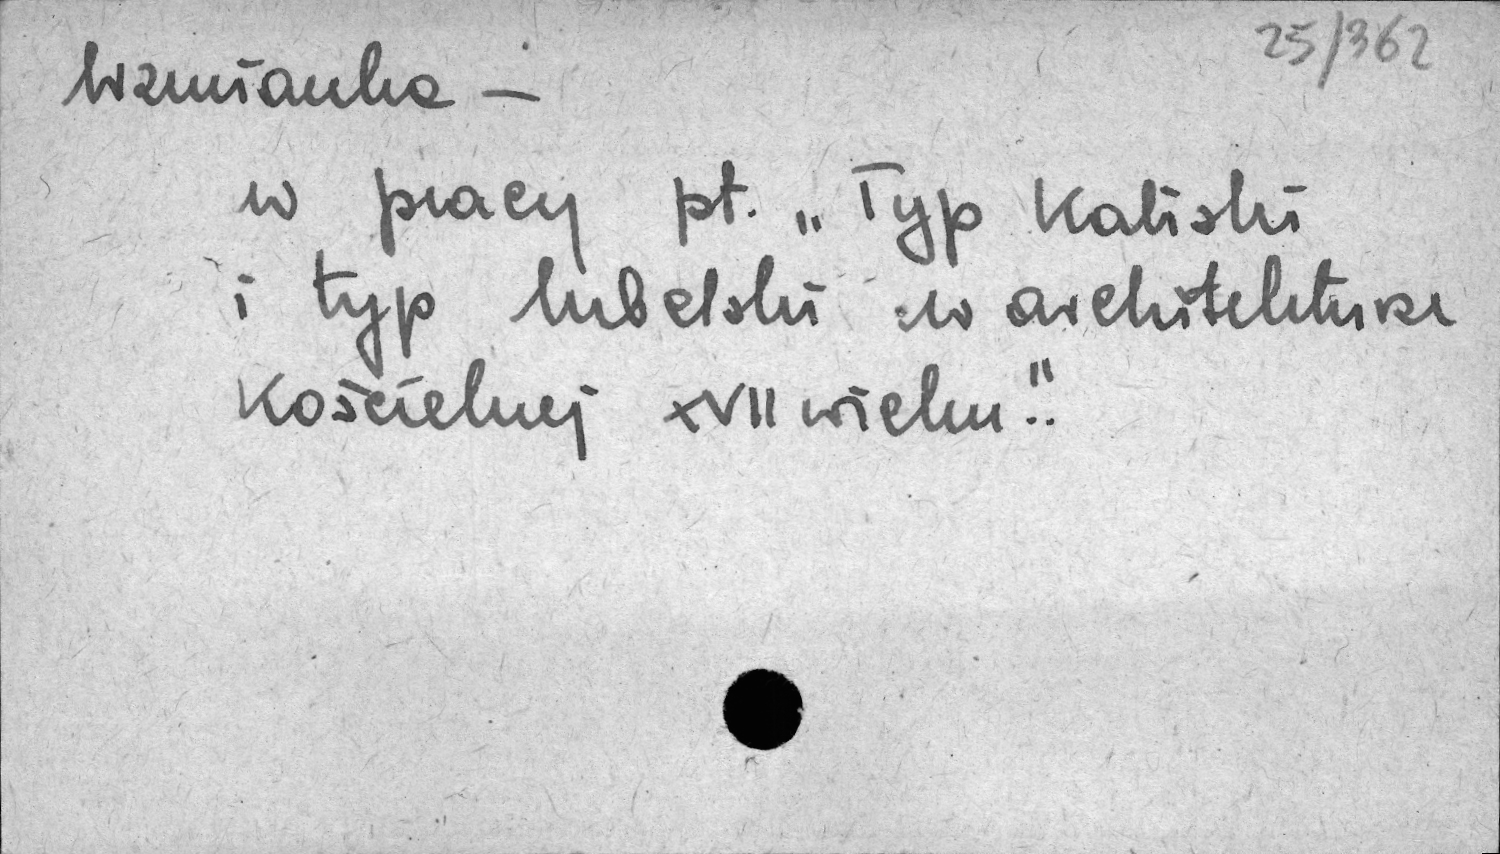 25/362
Wzmianka —
w pracy pt. „Typ Kaliski
i typ lubelski w architekturze
Kościelnej XVII wieku".